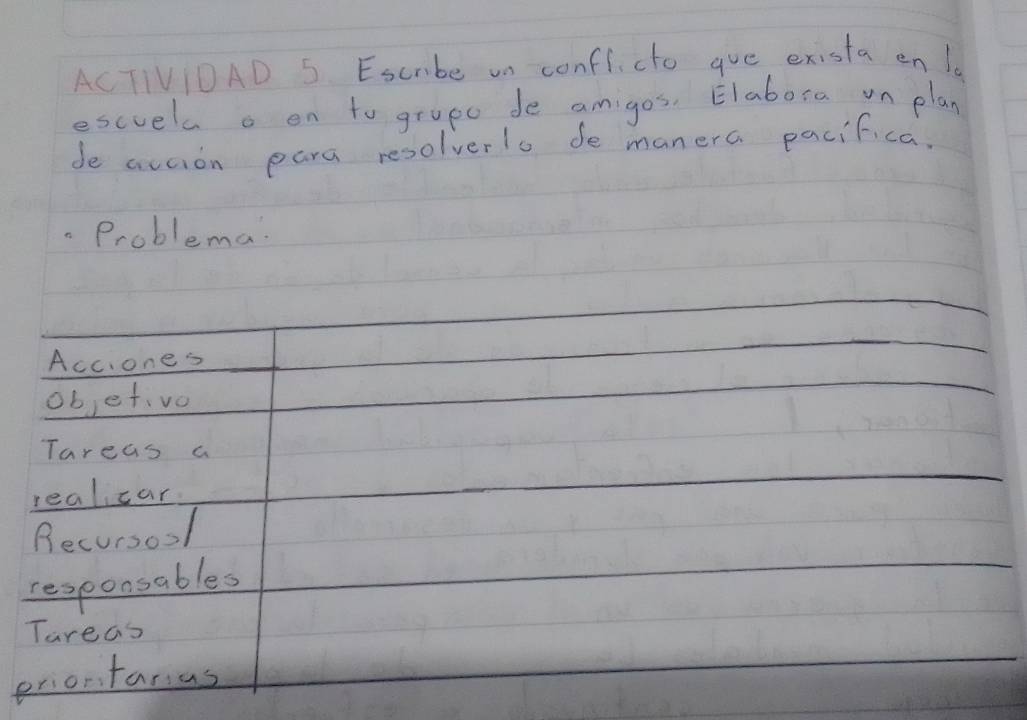 ACTIVIDAD 5 Escribe un conflicto que exista en la
escuela o en tu grupo de amigos. Elabora un plan
de acción para resolverlo de manera pacífica.
• Problema:
Acciones
Objetivo
Tareas a
realizar
Recursos/
responsables
Tareas
prioritarias